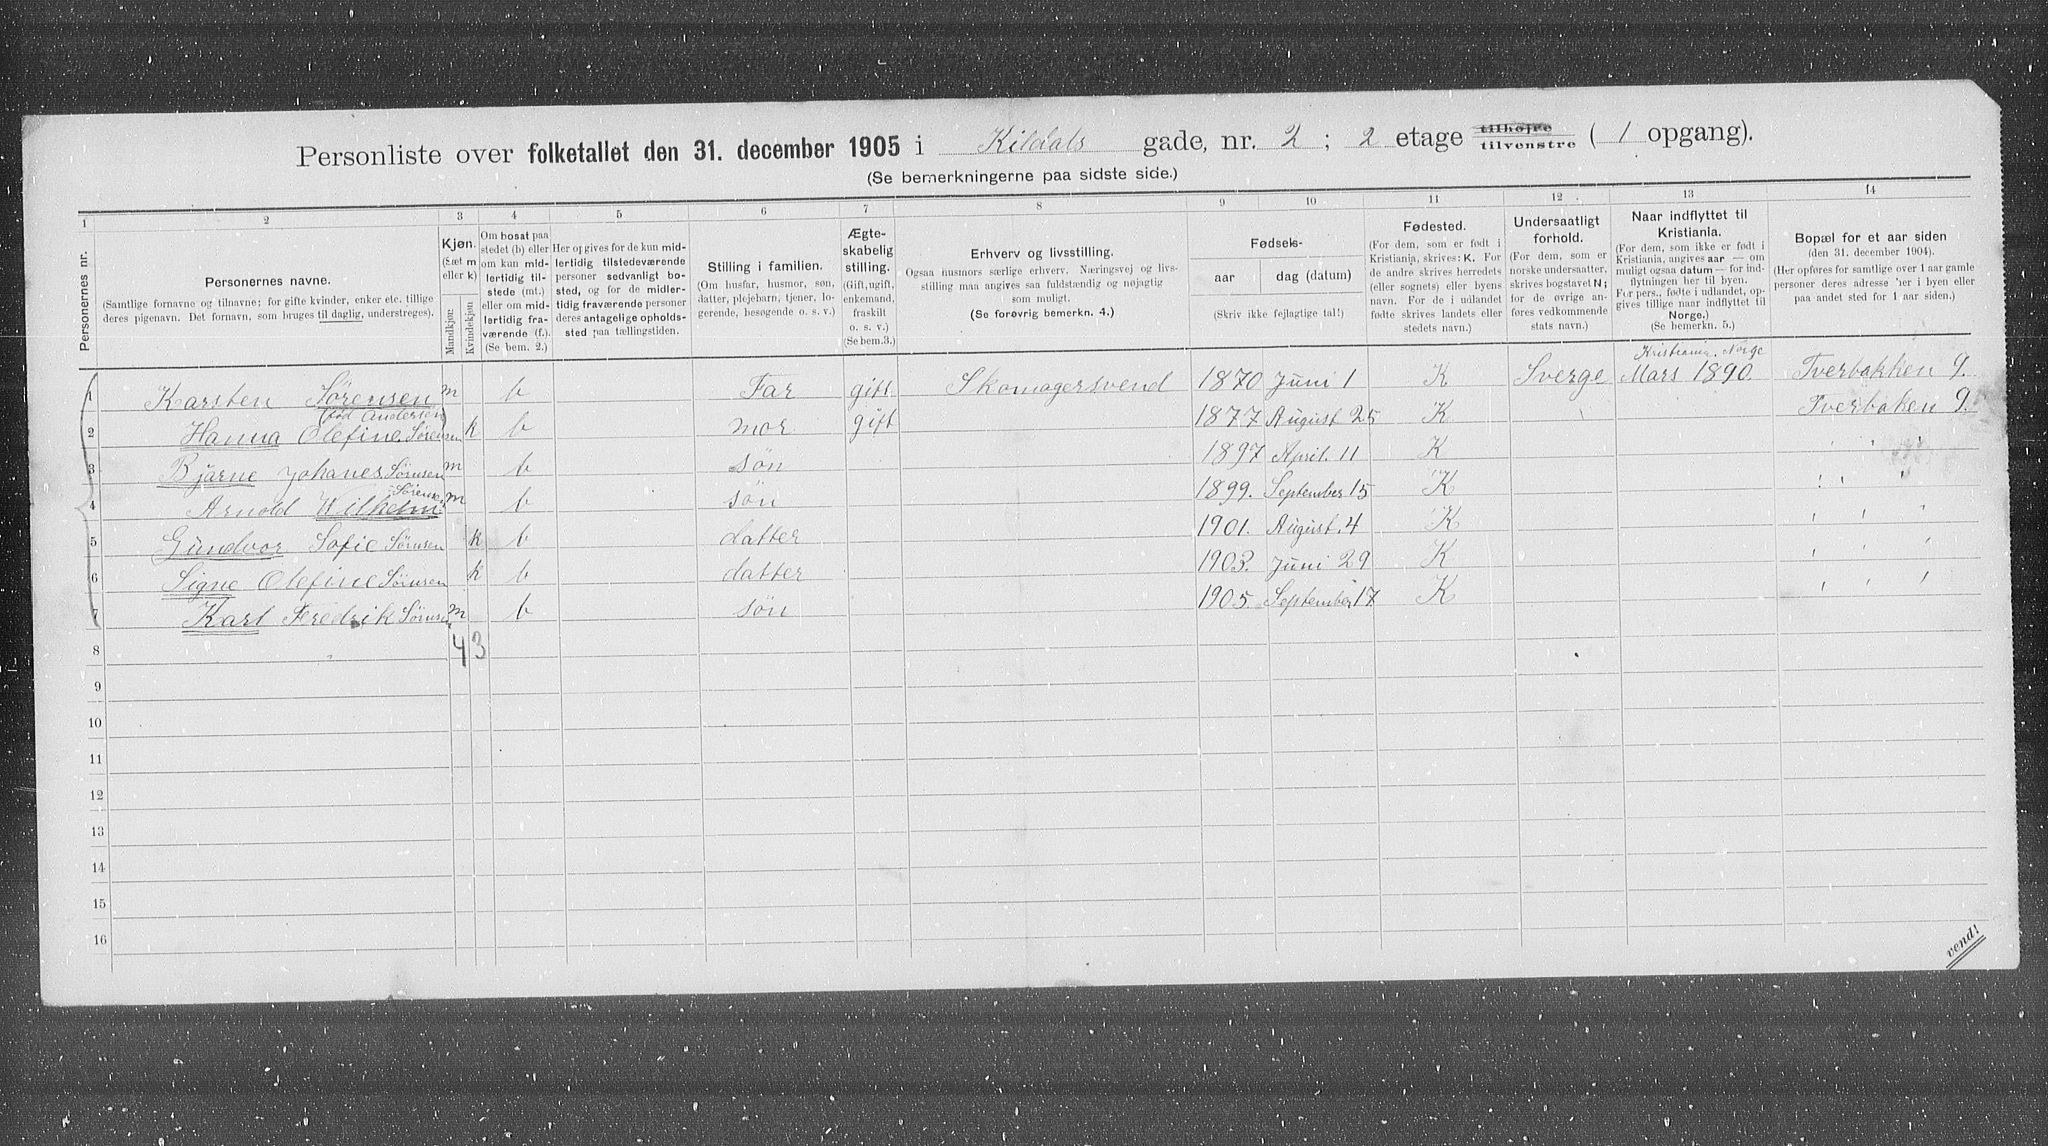 Personliste over folketallet den 31. december 1905 i Kildals gade, nr. 2 ; 2 etage tilhøjre tilvenstre ( 1 opgang).
(Se bemerkningerne paa sidste side.)
1 2 3 4 5 6 7 8 9 10 11 12 13 14
Personernes nr.
Personernes navne.
(Samtlige fornavne og tilnavne; for gifte kvinder, enker etc. tillige
deres pigenavn. Det fornavn, som bruges til daglig, understreges).
Kjøn.
(Sæt m
eller k)
Mandkjøn
Kvindekjøn
Om bosat paa
stedet (b) eller
om kun mid-
lertidig til-
stede (mt.)
eller om mid-
lertidig fra-
værende (f.).
(Se bem. 2.)
Her opgives for de kun mid-
lertidig tilstedeværende
personer sedvanligt bo-
sted, og for de midler-
tidig fraværende personer
deres antagelige opholds-
sted paa tællingstiden.
Stilling i familien.
(Om husfar, husmor, søn,
datter, plejebarn, tjener, lo-
gerende, besøgende o. s. v.)
Ægte-
skabelig
stilling.
(Gift, ugift,
enkemand,
fraskilt
o. s. v.)
(Se bem.3.)
Erhverv og livsstilling.
Ogsaa husmors særlige erhverv. Næringsvej og livs-
stilling maa angives saa fuldstændig og nøjagtig
som muligt.
(Se forøvrig bemerkn. 4.)
Fødsels-
aar
dag (datum)
(Skriv ikke fejlagtige tal!)
Fødested.
(For dem, som er født i
Kristiania, skrives: K. For
de andre skrives herredets
(eller sognets) eller byens
navn. For de i udlandet
fødte skrives landets eller
stedets navn.)
Undersaatligt
forhold.
(For dem, som er
norske undersaatter,
skrives bogstavet N;
for de øvrige an-
føres vedkommende
stats navn.)
Naar indflyttet til
Kristiania.
(For dem, som ikke er født i
Kristiania, angives aar — om
muligt ogsaa datum — for ind-
flytningen her til byen.
For pers., fødte i udlandet, op-
gives tillige naar indflyttet til
Norge.)
(Se bemerkn. 5.)
Bopæl for et aar siden
(den 31. december 1904).
(Her opføres for samtlige over 1 aar gamle
personer deres adresse her i byen eller
paa andet sted for 1 aar siden.)
Kristiania. Norge
1 Karsten Sørensen m b Far gift Skomagersvend 1870 Juni 1 K Sverge Mars 1890. Tverbakken 9.
(fød Andersen)
2 Hanna Olefine Sørensen k b mor gift 1877 August 25 K Tverbaken 9.
3 Bjarne Johanes Sørnsen m b søn 1897 April. 11 K " " "
Sørensen
4 Arnold Wilhelm m b søn 1899. September 15 K " " "
5 Gundvor Sofie Sørnsen k b datter 1901. August. 4 K " " "
6 Signe Olefine Sørnsen k b datter 1903. Juni 29 K " " "
7 Karl Fredrik Sørnsen m b søn 1905. September 17 K " " "
8 4 3
9
10
11
12
13
14
15
16
vend!